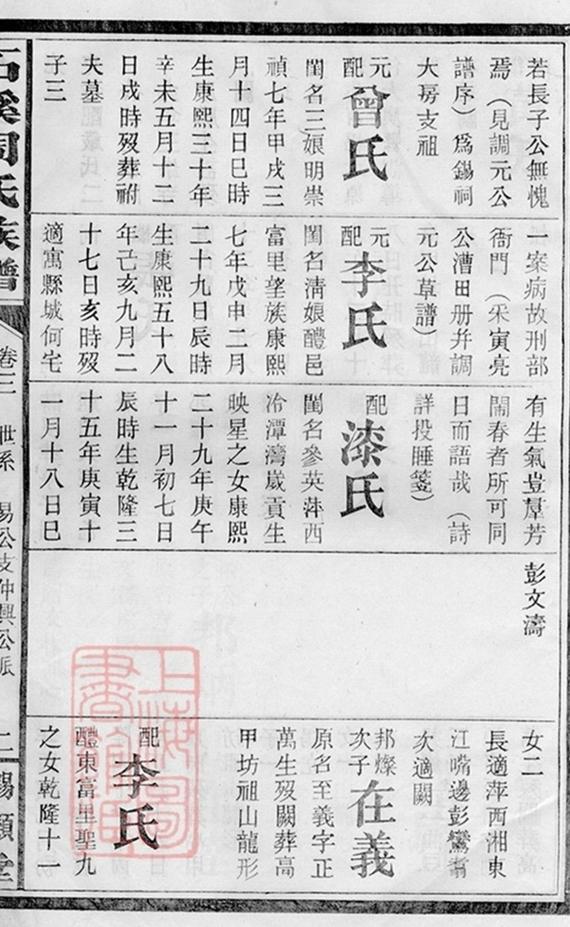 若長子公無愧
焉（見調元公
譜序）為錫祠
大房支祖
元配曾氏
閨名三娘明崇
禎七年甲戌三
月十四日巳時
生康熙三十年
辛未五月十三
日戌時歿葬祔
夫墓
子三
一案病故刑部
衙門（采寅亮
公漕田册并調
元公草譜）
元配李氏
閨名清娘醴邑
富里望族康熙
七年戊申二月
二十九日辰時
生康熙五十八
年己亥九月二
十七日亥時歿
適寓縣城何宅
有生氣豈羣芳
鬧春者所可同
日而語哉（詩
詳投睡箋）
配漆氏
閨名參英萍西
冷潭灣歲貢生
映星之女康熙
二十九年庚午
十一月初七日
辰時生乾隆三
十五年庚寅十
一月十八日巳
彭文濤
女二
長適萍西湘東
江嘴邊彭鸞翥
次適闕
邦燦次子在義
原名至義字正
萬生歿闕葬高
甲坊祖山龍形
配李氏
醴東富里聖九
之女乾隆十一
石溪周氏族譜
卷三
世系
錫公支仲興公派
二